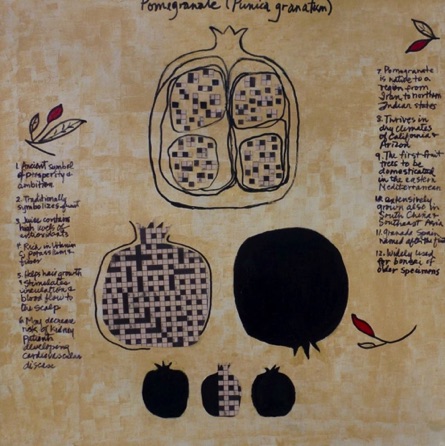 Pomegranate (Punica granatum)
1. Ancient symbol
of prosperity &
ambition
2. Traditionally
symbolizes fruit
3. Juice contains
high levels of
antioxidants
4. Rich in Vitamin
5. Helps hair growth
Stimulates
blood flow to
the scalp
6. May decrease
risk of kidney
patients
developing
cardiovascular
disease
7. Pomegranate
is native to a
region from
Iran to northern
Indian states
8. Thrives in
dry climates
of California &
Arizon
9. The first fruit
trees to be
domesticated
in the eastern
Mediterranean
10. extensively
grown also in
South China &
Southeast Asia
11. Granada Spain
named after the
12. Widely used
for bonsai of
older specimens